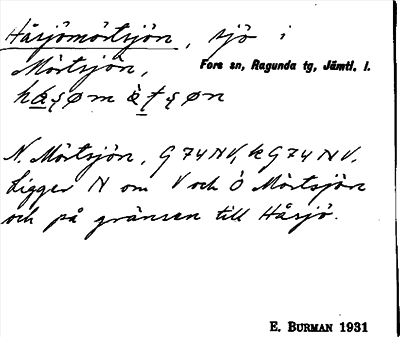 Håsjömörtsjön, sjö i
Mörtsjön, Fors sn, Ragunda tg, Jämtl. l.
N. Mörtsjön, G 74 NV, k G 74 NV.
Ligger N om V och Ö Mörtsjön
och på gränsen till Håsjö.
E. BURMAN 1931